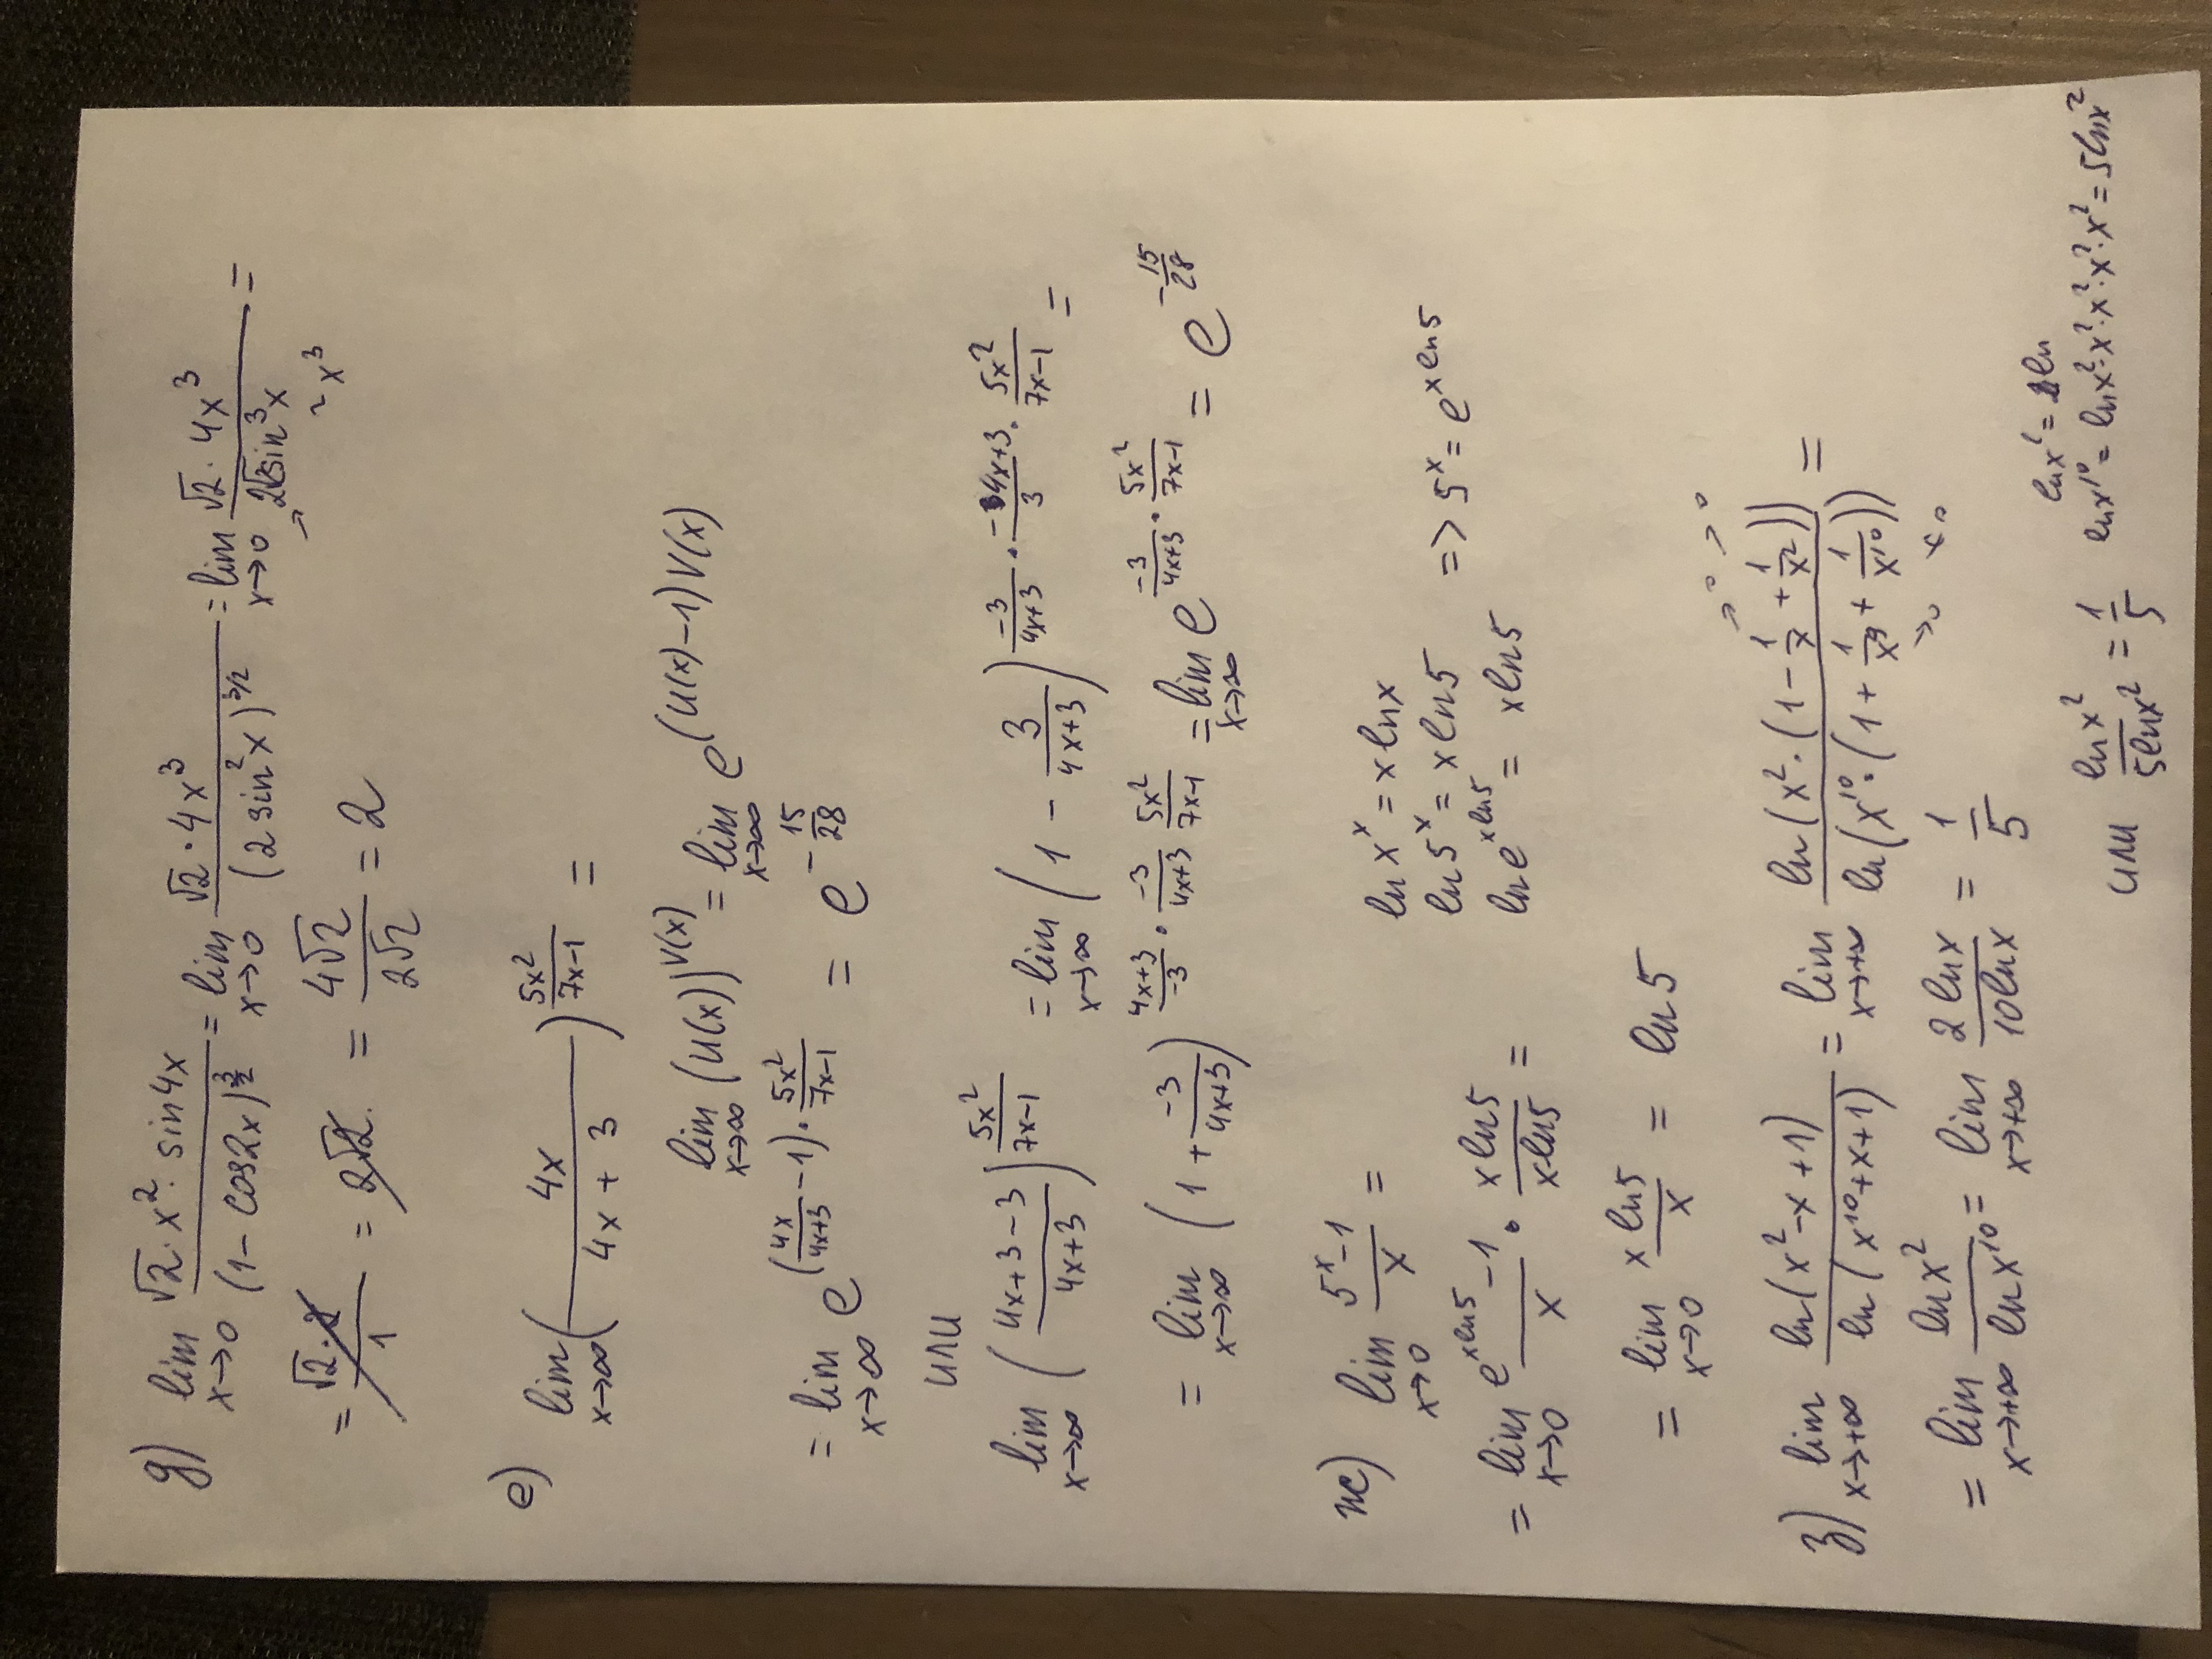 д) lim x→0 √2·x²·sin4x / (1-cos2x)^(3/2) = lim x→0 √2·4x³ / (2sin²x)^(3/2) = lim x→0 √2·4x³ / 2√2sin³x =
→ ~x³
= √2·2 / 1 = 2√2. = 4√2 / 2√2 = 2
е) lim x→∞ (4x / 4x+3)^(5x² / 7x-1) =
lim x→∞ (U(x))^V(x) = lim x→∞ e^(U(x)-1)V(x)
= lim x→∞ e^((4x / 4x+3 - 1)·5x² / 7x-1) = e^(-15/28)
или
lim x→∞ (4x+3-3 / 4x+3)^(5x² / 7x-1) = lim x→∞ (1 - 3 / 4x+3)^(-3 / 4x+3 · -4x+3 / 3 · 5x² / 7x-1) =
= lim x→∞ (1 + -3 / 4x+3)^(4x+3 / -3 · -3 / 4x+3 5x² / 7x-1) = lim x→∞ e^(-3 / 4x+3 · 5x² / 7x-1) = e^(-15/28)
ж) lim x→0 5^x-1 / x =
ln x^x = x ln x
ln 5^x = x ln 5 => 5^x = e^(x ln 5)
ln e^(x ln 5) = x ln 5
= lim x→0 e^(x ln 5) - 1 / x · x ln 5 / x ln 5 =
= lim x→0 x ln 5 / x = ln 5
→0 →0
з) lim x→+∞ ln(x²-x+1) / ln(x¹⁰+x+1) = lim x→+∞ ln(x²·(1 - 1/x + 1/x²)) / ln(x¹⁰·(1 + 1/x⁹ + 1/x¹⁰)) =
→0 →0
= lim x→+∞ ln x² / ln x¹⁰ = lim x→+∞ 2 ln x / 10 ln x = 1/5
или ln x² / 5 ln x² = 1/5
ln x¹⁰ = ln x²·x²·x²·x²·x² = 5 ln x²